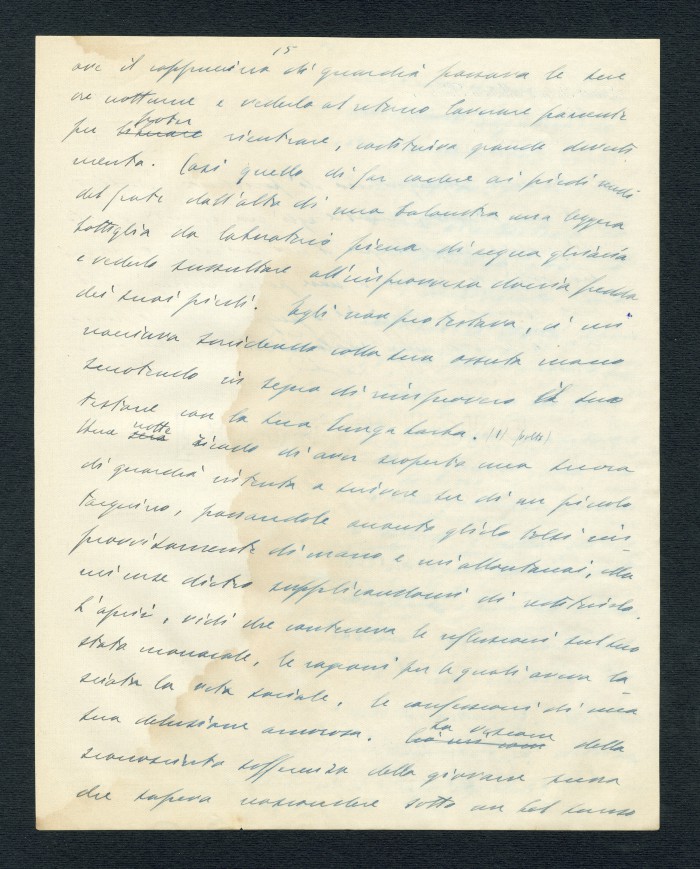 15
ove il cappuccino di guardia passava le sue
ore notturne e vederlo al ritorno lavorare
per poter rientrare, costituiva grande diverti
mento. Così quello di far cadere ai piedi nudi
del frate dall'alto di una balaustra una leggera
bottiglia da laboratorio piena di acqua ghiaccia
e vederlo sussultare all'improvvisa doccia fredda
dei suoi piedi. Egli non protestava, ci mi
nacciava sorridendo colla sua ossuta mano
scuotendo in segno di rimprovero il suo
testone con la sua lunga barba.
Una notte ricordo di aver scoperto una suora
di guardia intenta a scrivere su di un piccolo
taquino, passandole accanto glielo tolsi im
provvisamente di mano e mi allontanai. Ella
mi corse dietro supplicandomi di restituirlo.
L'aprii, vidi che conteneva le riflessioni sul suo
stato monacale, le ragioni per le quali aveva la
sciata la vita sociale, le confessioni di una
sua delusione amorosa. La visione della
sconosciuta sofferenza della giovane suora
che sapeva nascondere sotto un bel